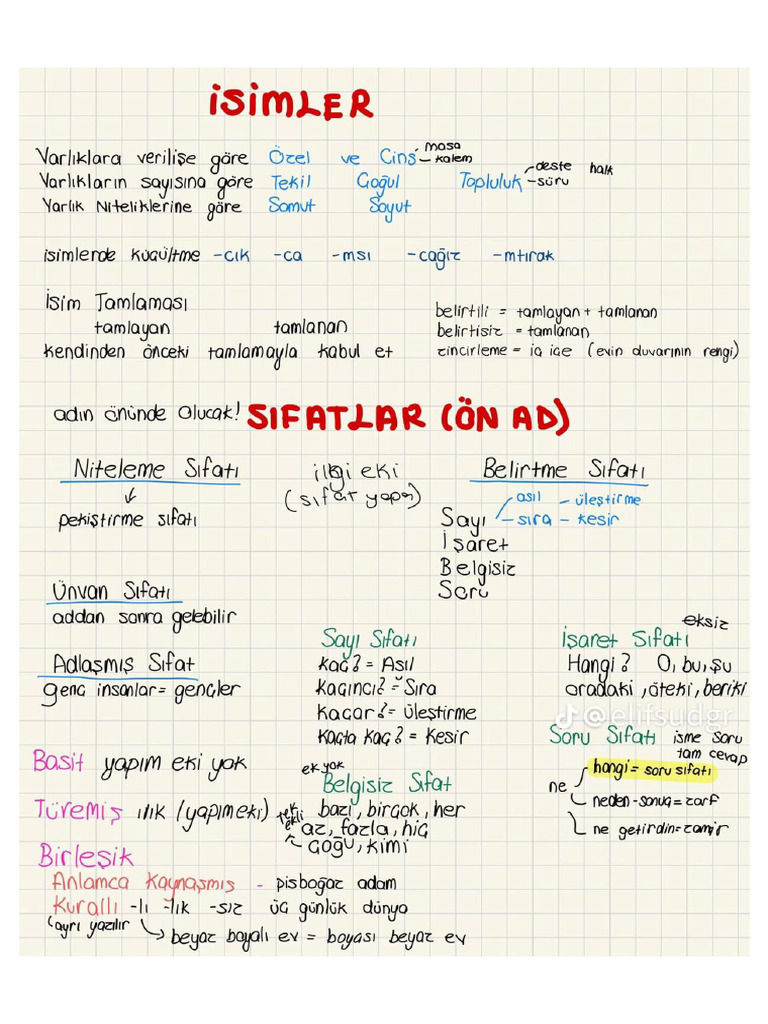 İSİMLER
Varlıklara verilişe göre Özel ve Cins - masa - kalem
Varlıkların sayısına göre Tekil Çoğul Topluluk - deste - sürü halk
Varlık Niteliklerine göre Somut Soyut
isimlerde küçültme -cık -ca -msı -cağız -mtırak
İsim Tamlaması
tamlayan tamlanan
kendinden önceki tamlamayla kabul et
belirtili = tamlayan + tamlanan
belirtisiz = tamlanan
zincirleme = iç içe (evin duvarının rengi)
adın önünde olucak! SIFATLAR (ÖN AD)
Niteleme Sıfatı
pekiştirme sıfatı
ilgi eki
(sıfat yapar)
Belirtme Sıfatı
Sayı - asıl - üleştirme
- sıra - kesir
İşaret
Belgisiz
Soru
Ünvan Sıfatı
addan sonra gelebilir
Adlaşmış Sıfat
genç insanlar = gençler
Sayı Sıfatı
kaç? = Asıl
kaçıncı? = Sıra
kaçar? = üleştirme
kaçta kaç? = Kesir
eksiz
İşaret Sıfatı
Hangi? O, bu, şu
oradaki, öteki, beriki
@elifsudgr
Soru Sıfatı isme soru
tam cevap
ne
hangi = soru sıfatı
neden - sonuç = zarf
ne getirdin = zamir
Basit yapım eki yok
Türemiş ılık (yapım eki)
Birleşik
Anlamca Kaynaşmış - pisboğaz adam
Kurallı -lı -lık -sız üç günlük dünya
ayrı yazılır
beyaz boyalı ev = boyası beyaz ev
ek yok
Belgisiz Sıfat
bazı, birçok, her
az, fazla, hiç
tek ekli
çoğu, kimi